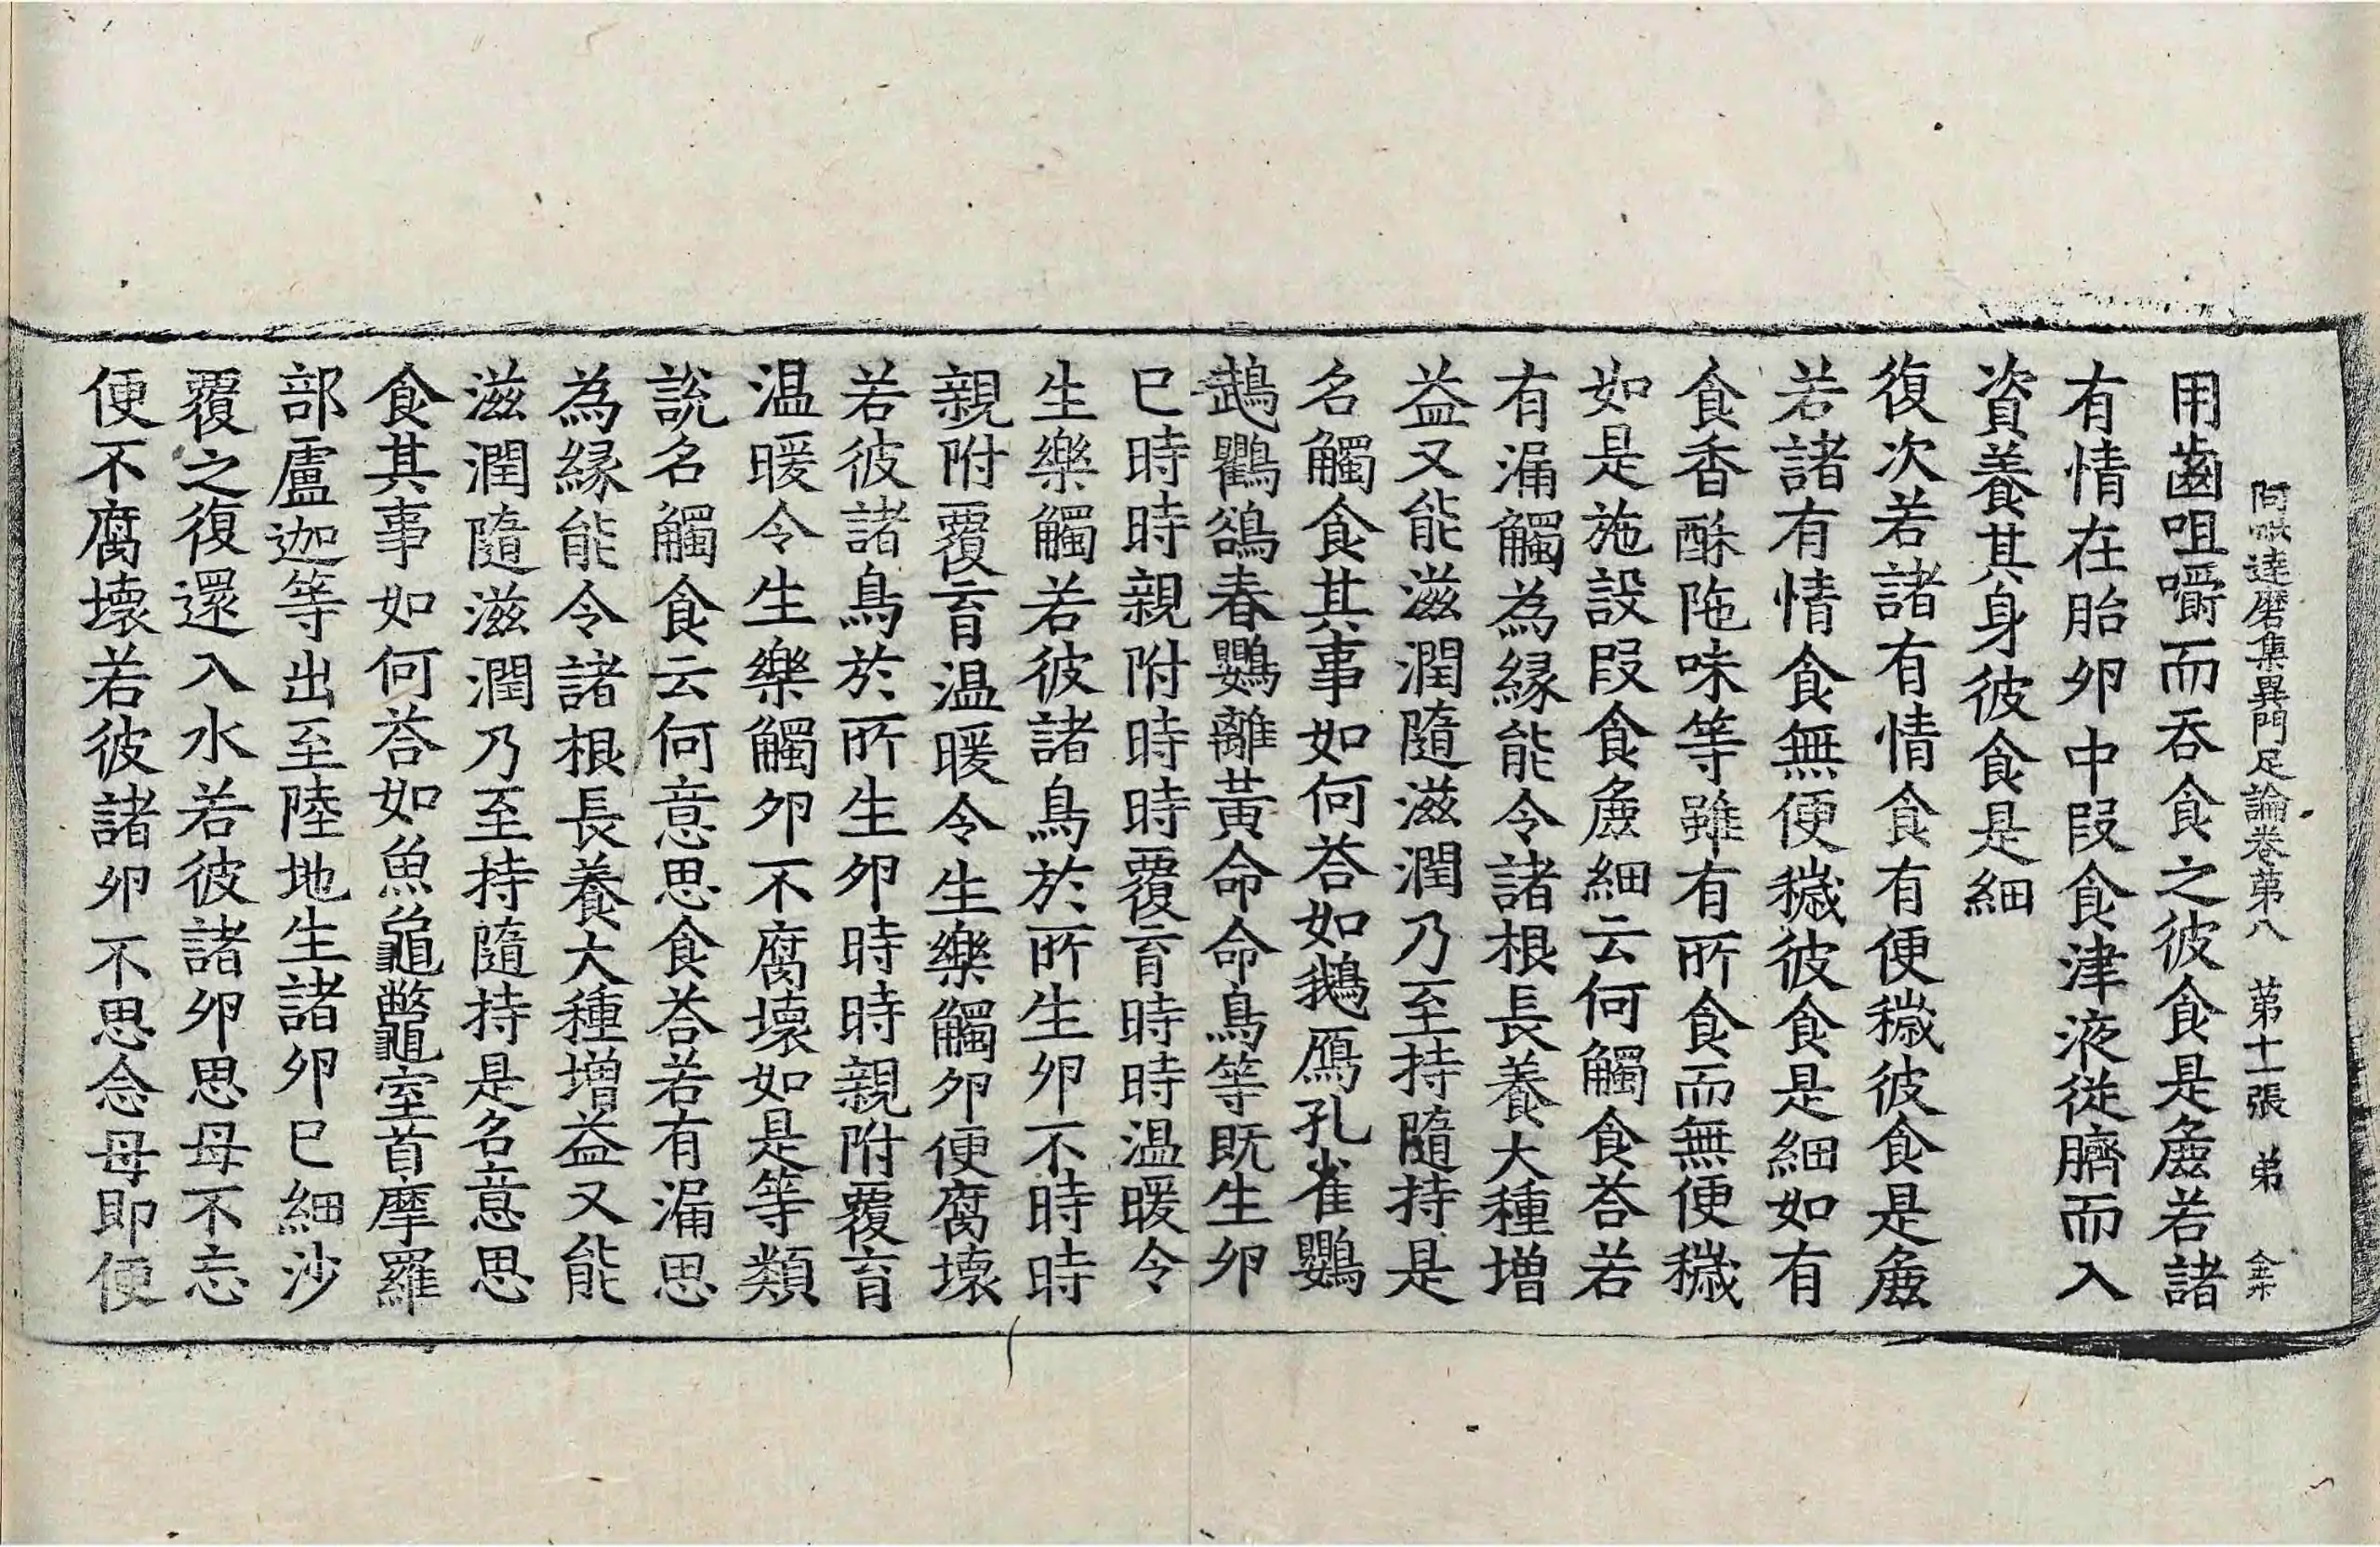 阿毗達磨集異門足論卷第八 第十一張 弟
用齒咀嚼而吞食之彼食是麁若諸
有情在胎卵中段食津液從臍而入
資養其身彼食是細
復次若諸有情食有便穢彼食是麁
若諸有情食無便穢彼食是細如有
食香酥陁味等雖有所食而無便穢
如是施設段食麁細云何觸食荅若
有漏觸為緣能令諸根長養大種增
益又能滋潤隨滋潤乃至持隨持是
名觸食其事如何荅如鵝鴈孔雀鸚
鵡鸜鵒春鸚離黃命命鳥等既生卵
已時時親附時時覆育時時温暖令
生樂觸若彼諸鳥於所生卵不時時
親附覆育温暖令生樂觸卵便腐壞
若彼諸鳥於所生卵時時親附覆育
温暖令生樂觸卵不腐壞如是等類
說名觸食云何意思食荅若有漏思
為緣能令諸根長養大種增益又能
滋潤隨滋潤乃至持隨持是名意思
食其事如何荅如魚龜鼈室首摩羅
部盧迦等出至陸地生諸卵已細沙
覆之復還入水若彼諸卵思母不忘
便不腐壞若彼諸卵不思念母即便